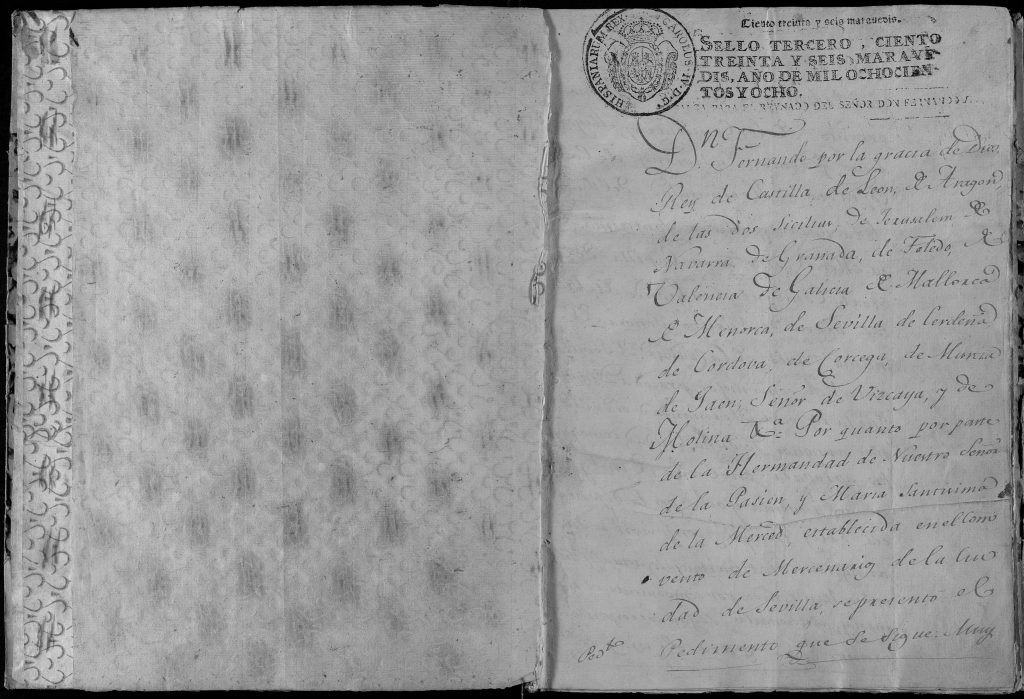 Ciento treinta y seis maravedis.
HISPANIARUM REX. CAROLUS. IV. D. G.
SELLO TERCERO, CIENTO
TREINTA Y SEIS MARAVE
DIS, AÑO DE MIL OCHOCIEN
TOS Y OCHO.
PARA EL REYNADO DEL SEÑOR DON
Dn. Fernando por la gracia de Dios,
Rey de Castilla, de Leon, de Aragon,
de las dos Sicilias, de Jerusalem de
Navarra, de Granada, de Toledo, de
Valencia de Galicia de Mallorca
de Menorca, de Sevilla de Cerdeña
de Cordova, de Corcega, de Murcia
de Jaen, Señor de Vizcaya, y de
Molina &a. Por quanto por parte
de la Hermandad de Nuestro Señor
de la Pasion, y Maria Santisima
de la Merced, establecida en el Com
vento de Mercenarios de la Ciu
dad de Sevilla, se presentó el
Pedimento que se sigue. Muy
Pedto